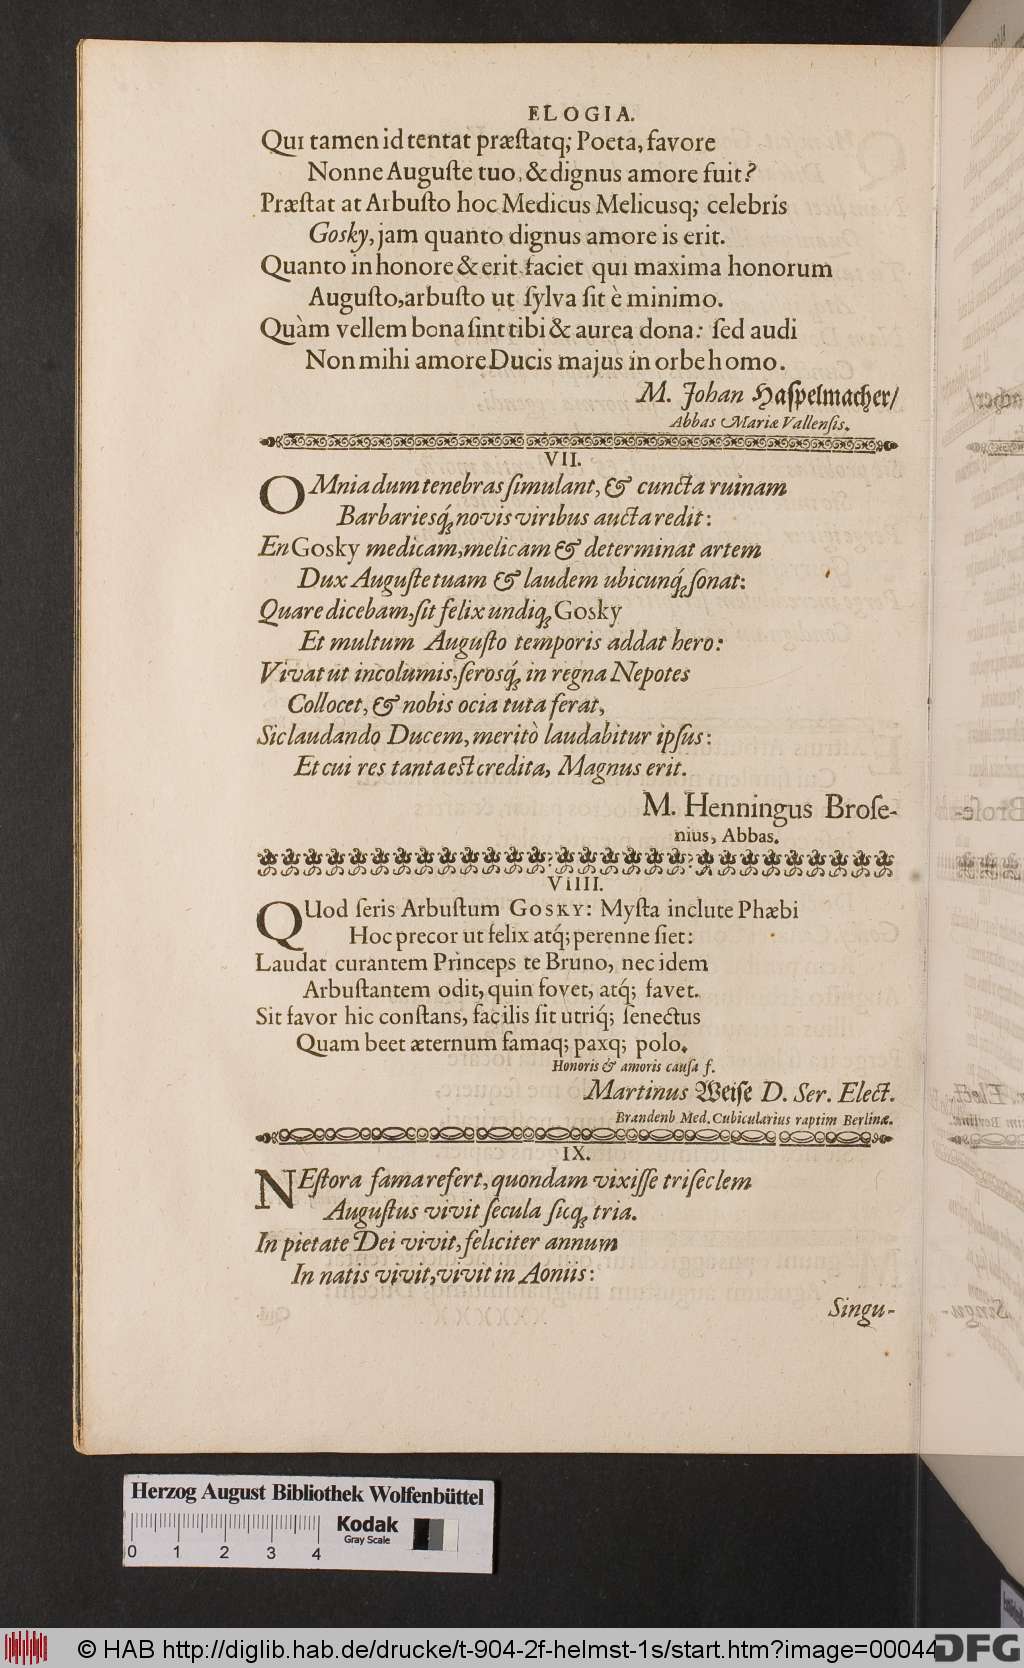 ELOGIA.
Qui tamen id tentat præſtatq; Poeta, favore
Nonne Auguſte tuo, & dignus amore fuit?
Præſtat at Arbuſto hoc Medicus Melicusq; celebris
Gosky, jam quanto dignus amore is erit.
Quanto in honore & erit faciet qui maxima honorum
Auguſto, arbuſto ut ſylva ſit è minimo.
Quàm vellem bona ſint tibi & aurea dona: ſed audi
Non mihi amore Ducis majus in orbe homo.
M. Johan Haſpelmacher/
Abbas Mariæ Vallenſis.
VII.
OMnia dum tenebras ſimulant, & cuncta ruinam
Barbariesq́; novis viribus aucta redit:
En Gosky medicam, melicam & determinat artem
Dux Auguſte tuam & laudem ubicunq́; ſonat:
Quare dicebam, ſit felix undiq; Gosky
Et multum Auguſto temporis addat hero:
Vivat ut incolumis, ſerosq́; in regna Nepotes
Collocet, & nobis ocia tuta ferat,
Sic laudando Ducem, meritò laudabitur ipſus:
Et cui res tanta eſt credita, Magnus erit.
M. Henningus Broſe-
nius, Abbas.
VIIII.
QUod ſeris Arbuſtum GOSKY: Myſta inclute Phæbi
Hoc precor ut felix atq́; perenne ſiet:
Laudat curantem Princeps te Bruno, nec idem
Arbuſtantem odit, quin fovet, atq́; favet.
Sit favor hic conſtans, facilis ſit utriq́; ſenectus
Quam beet æternum famaq; paxq; polo.
Honoris & amoris cauſa f.
Martinus Weiſe D. Ser. Elect.
Brandenb Med. Cubicularius raptim Berlinæ.
IX.
NEſtora fama refert, quondam vixiſſe triſeclem
Auguſtus vivit ſecula ſicq; tria.
In pietate Dei vivit, feliciter annum
In natis vivit, vivit in Aoniis:
Singu-
Herzog August Bibliothek Wolfenbüttel
0 1 2 3 4
Kodak
Gray Scale
© HAB http://diglib.hab.de/drucke/t-904-2f-helmst-1s/start.htm?image=00044
DFG